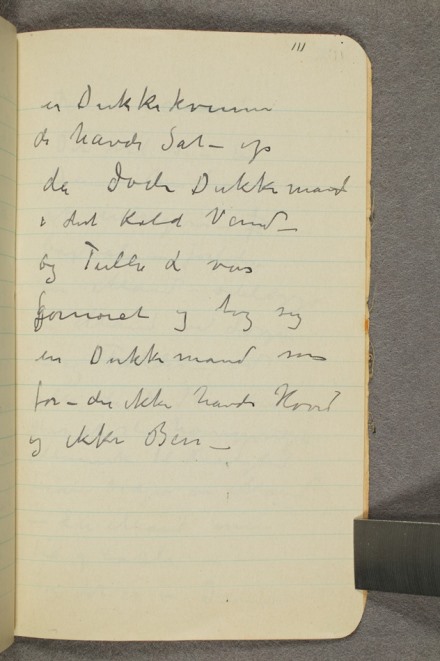 111
en Dukkekvinne
de havde Sat – op
den Døde Dukkemand
i det Kold Vand –
og Tulla d var
fornøiet og tog sig
en Dukkemand som
for – der ikke havde Hoved
og ikke Ben –